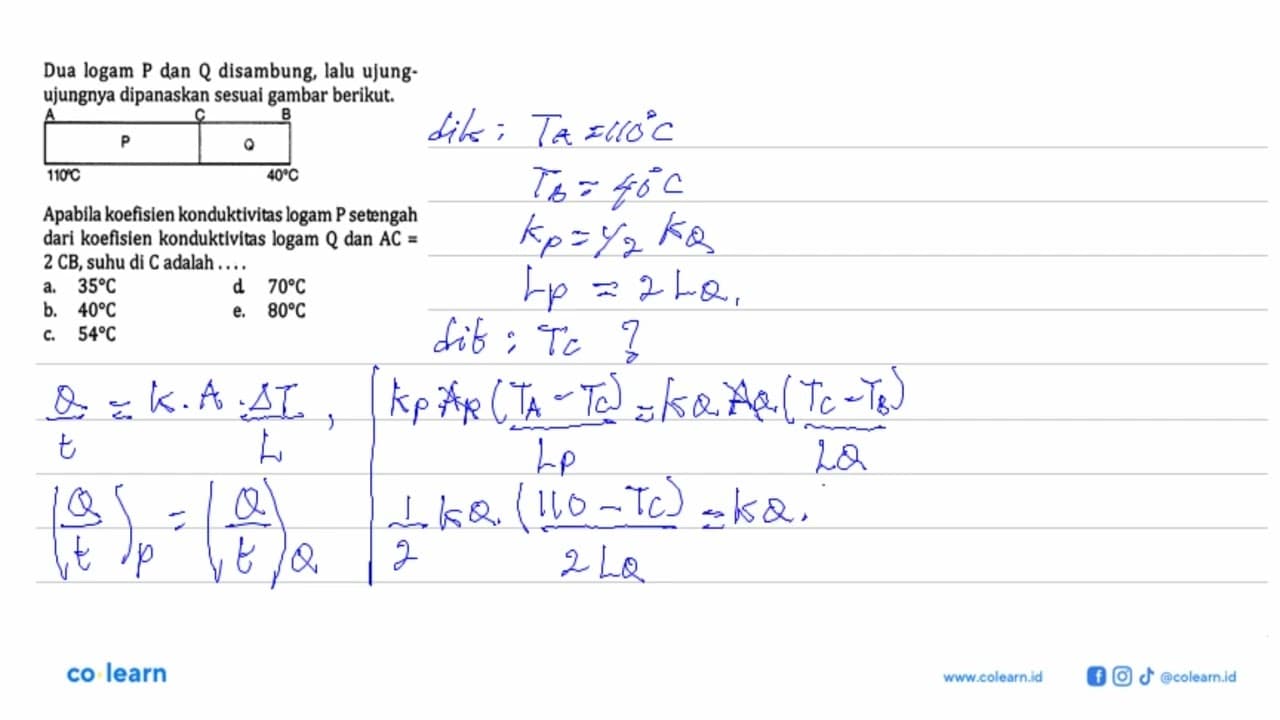 Dua logam P dan Q disambung, lalu ujung-
ujungnya dipanaskan sesuai gambar berikut.
A C B
P Q
110°C 40°C
Apabila koefisien konduktivitas logam P setengah
dari koefisien konduktivitas logam Q dan AC =
2 CB, suhu di C adalah ....
a. 35°C d. 70°C
b. 40°C e. 80°C
c. 54°C
dik : TA = 110°C
TB = 40°C
kP = 1/2 kQ
LP = 2 LQ.
dit : TC ?
Q/t = k . A . ΔT/L ,
(Q/t)P = (Q/t)Q
kP AP (TA - TC)/LP = kQ AQ (TC - TB)/LQ
1/2 kQ . (110 - TC)/2 LQ = kQ .
co learn
www.colearn.id
@colearn.id